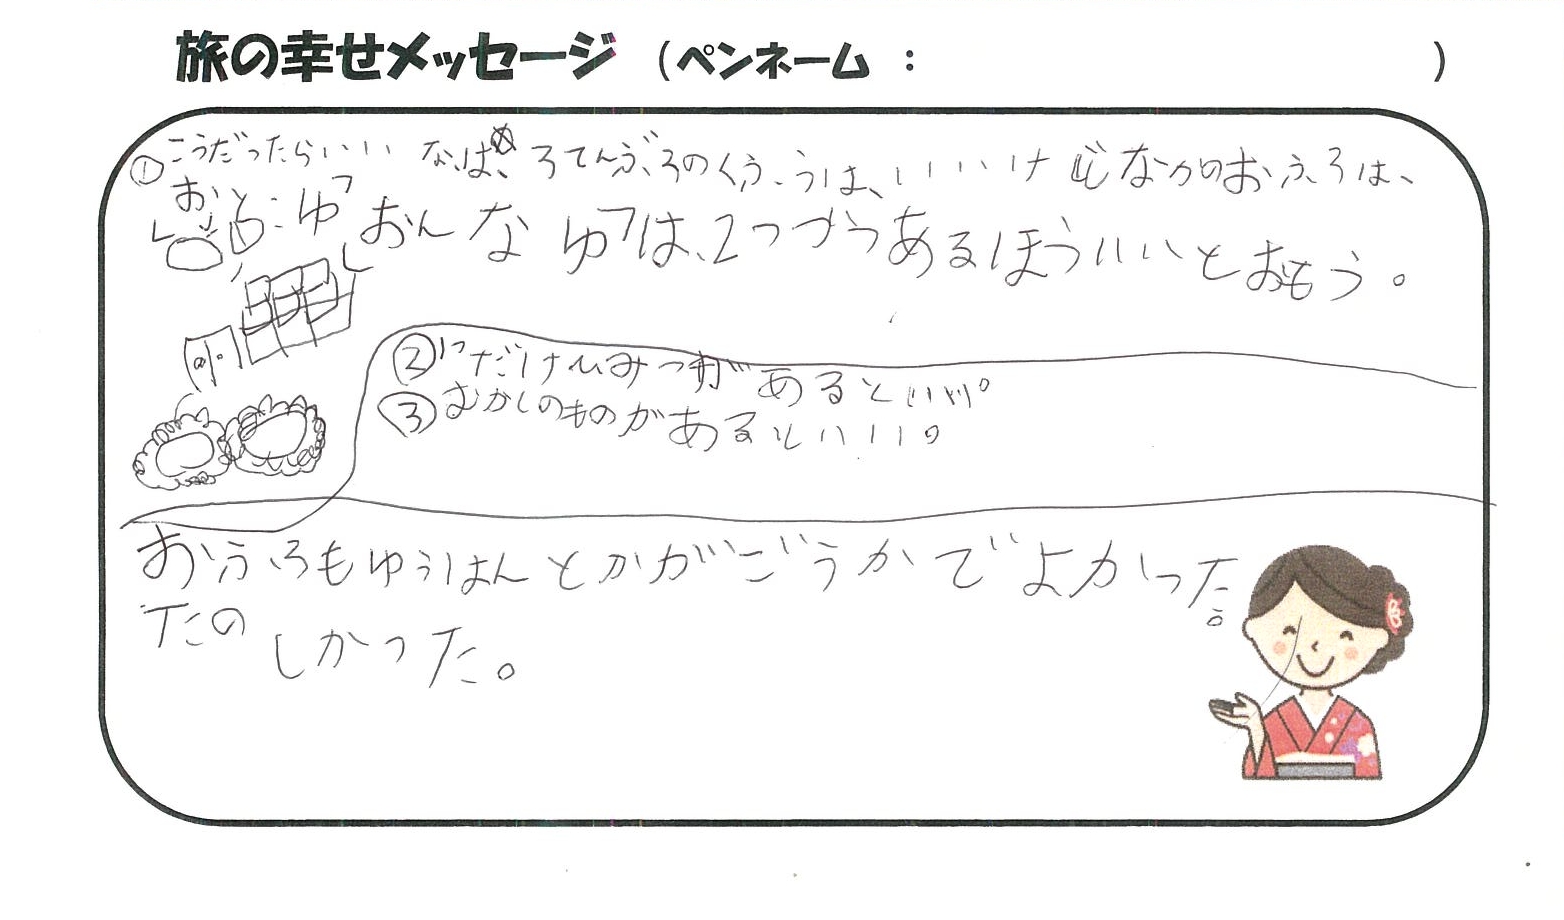 旅の幸せメッセージ (ペンネーム : )
①こうだったらいい なは、ろてんぶろのくうは、いいけ なかのおふろは、
おとこゆ「おんな ゆ「は、2つづつあるほういいとおもう。
② だけひみつが あるといい。
③ むかしのものがあるといい。
おふろもゆうはんとかがごうかでよかった。
たの
しかった。